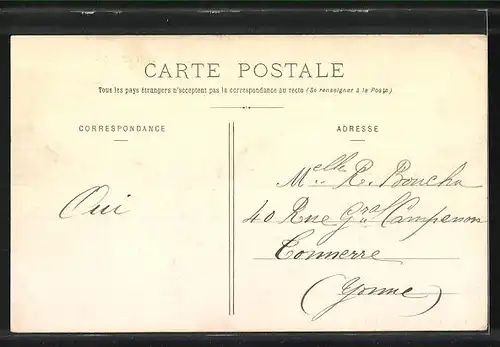 CARTE POSTALE
Tous les pays étrangers n'acceptent pas la correspondance au recto (Se renseigner à la Poste)
CORRESPONDANCE
ADRESSE
Oui
Melle R. Boucha
40 Rue Gral Campenon
Tonnerre
(Yonne)